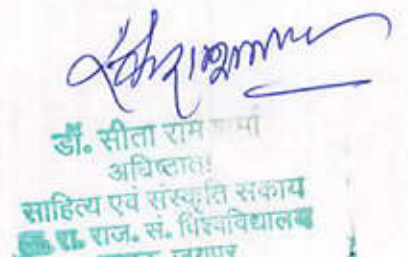 डॉ. सीता राम शर्मा
अधिष्ठाता
साहित्य एवं संस्कृति संकाय
रा. राज. सं. विश्वविद्यालय
जयपुर